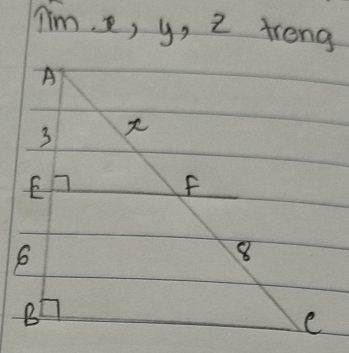 Tìm x, y, z trong
A
3
x
E
F
6
8
B
C